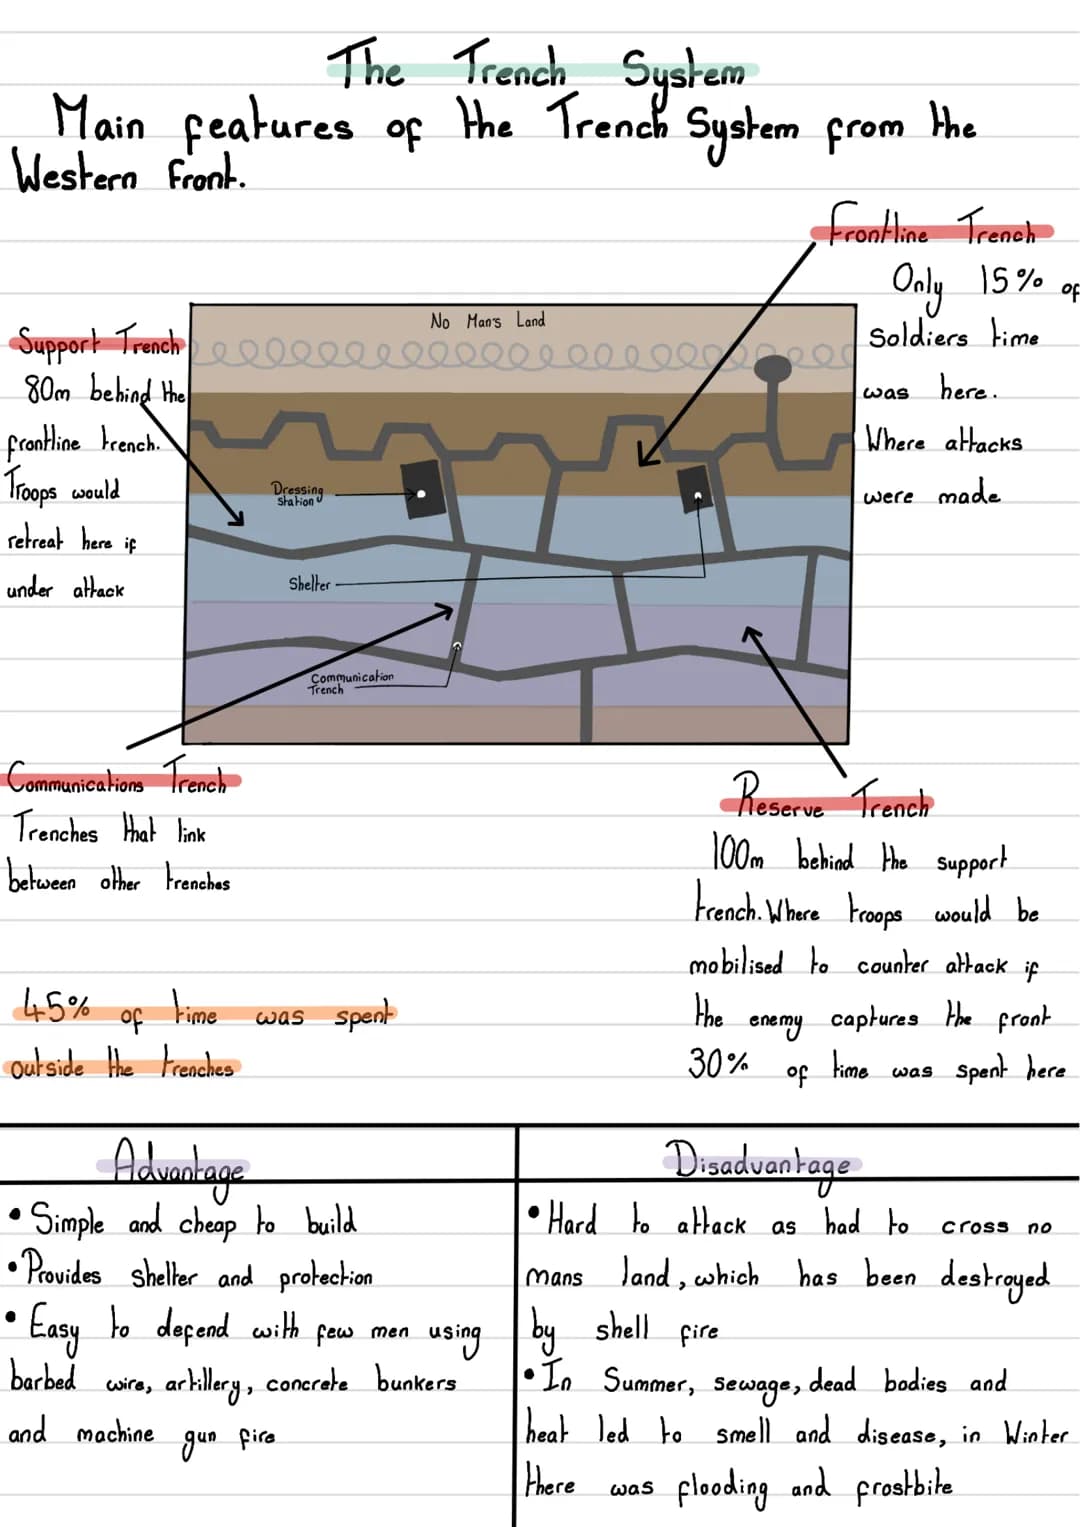 The Trench System
Main features of the Trench System from the
Western Front.
Frontline Trench
Only 15% of
Soldiers time
was here.
Where attacks
were made
Support Trench
80m behind the
frontline trench.
Troops would
retreat here if
under attack
No Man's Land
Dressing
Station
Shelter
Communication
Trench
Communications Trench
Trenches that link
between other trenches
Reserve Trench
100m behind the support
trench. Where troops would be
mobilised to counter attack if
the enemy captures the front
30% of time was spent here
45% of time was spent
outside the trenches
Advantage
• Simple and cheap to build
• Provides shelter and protection
• Easy to defend with few men using
barbed wire, artillery, concrete bunkers
and machine gun fire
Disadvantage
• Hard to attack as had to cross no
mans land, which has been destroyed
by shell fire
• In Summer, sewage, dead bodies and
heat led to smell and disease, in Winter
there was flooding and frostbite